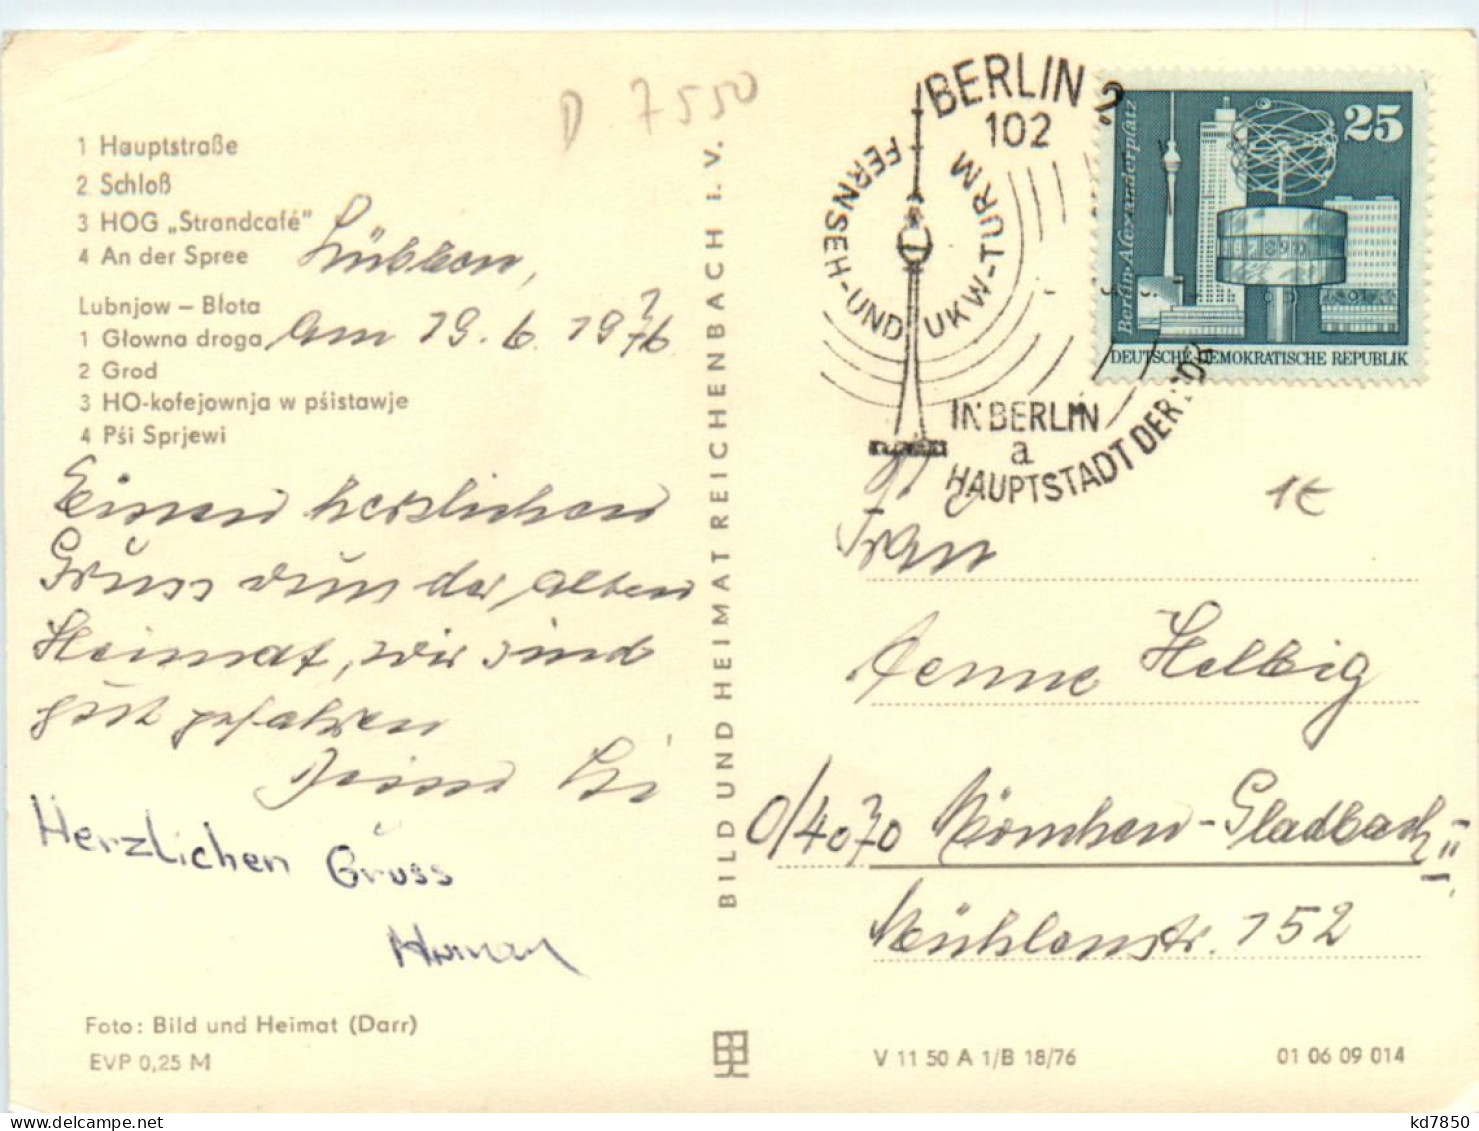 D 7550
1 Hauptstraße
2 Schloß
3 HOG „Strandcafé"
4 An der Spree
Lübben,
Lubnjow – Błota
1 Głowna droga
am 19. 6. 1976
2 Grod
3 HO-kofejownja w pśistawje
4 Pśi Sprjewi
Einen herzlichen
Gruss von der alten
Heimat, wir sind
gut gefahren
Herzlichen Gruss
Foto: Bild und Heimat (Darr)
EVP 0,25 M
BILD UND HEIMAT REICHENBACH I. V.
BERLIN 2
102
FERNSEH-UND UKW-TURM
IN BERLIN
a
HAUPTSTADT DER DDR
Berlin-Alexanderplatz
25
DEUTSCHE DEMOKRATISCHE REPUBLIK
1€
Frau
Aenne Helbig
4070 Mönchen-Gladbach
Mühlenstr. 152
V 11 50 A 1/B 18/76
01 06 09 014
kd7850